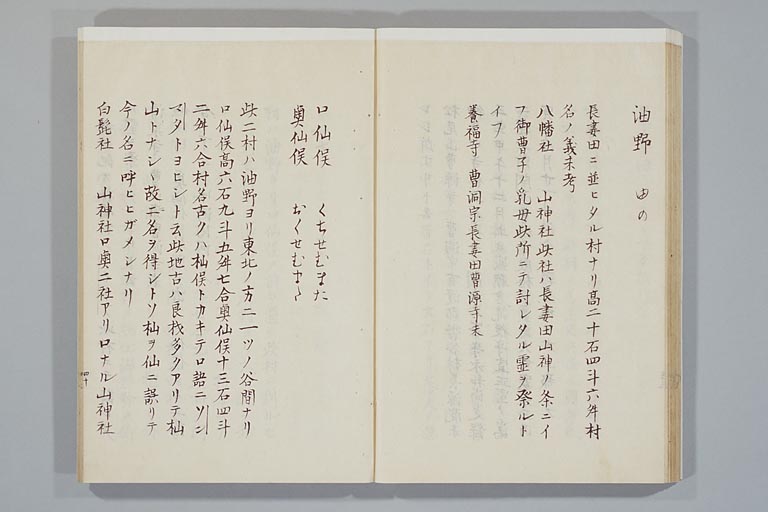 油野 由の
長妻田ニ並ヒタル村ナリ高二十石四斗六舛村
名ノ義未考
八幡社 山神社此社ハ長妻田山神ノ条ニイ
フ御曹子ノ乳母此所ニテ討レタル霊ヲ祭ルト
イフ
養福寺 曹洞宗長妻田曹源寺末
口仙俣 くちせむまた
奥仙俣 おくせむまた
此二村ハ油野ヨリ東北ノ方ニ一ツノ谷間ナリ
口仙俣高六石九斗五舛七合奥仙俣十三石四斗
二舛六合村名古クハ杣俣トカキテ口語ニソン
マタトヨヒシト云此地古ハ良材多クアリテ杣
山トナシヽ故ニ名ヲ得シトソ杣ヲ仙ニ誤リテ
今ノ名ニ呼ヒヒガメシナリ
白髭社 山神社口奥二社アリ口ナル山神社
四十